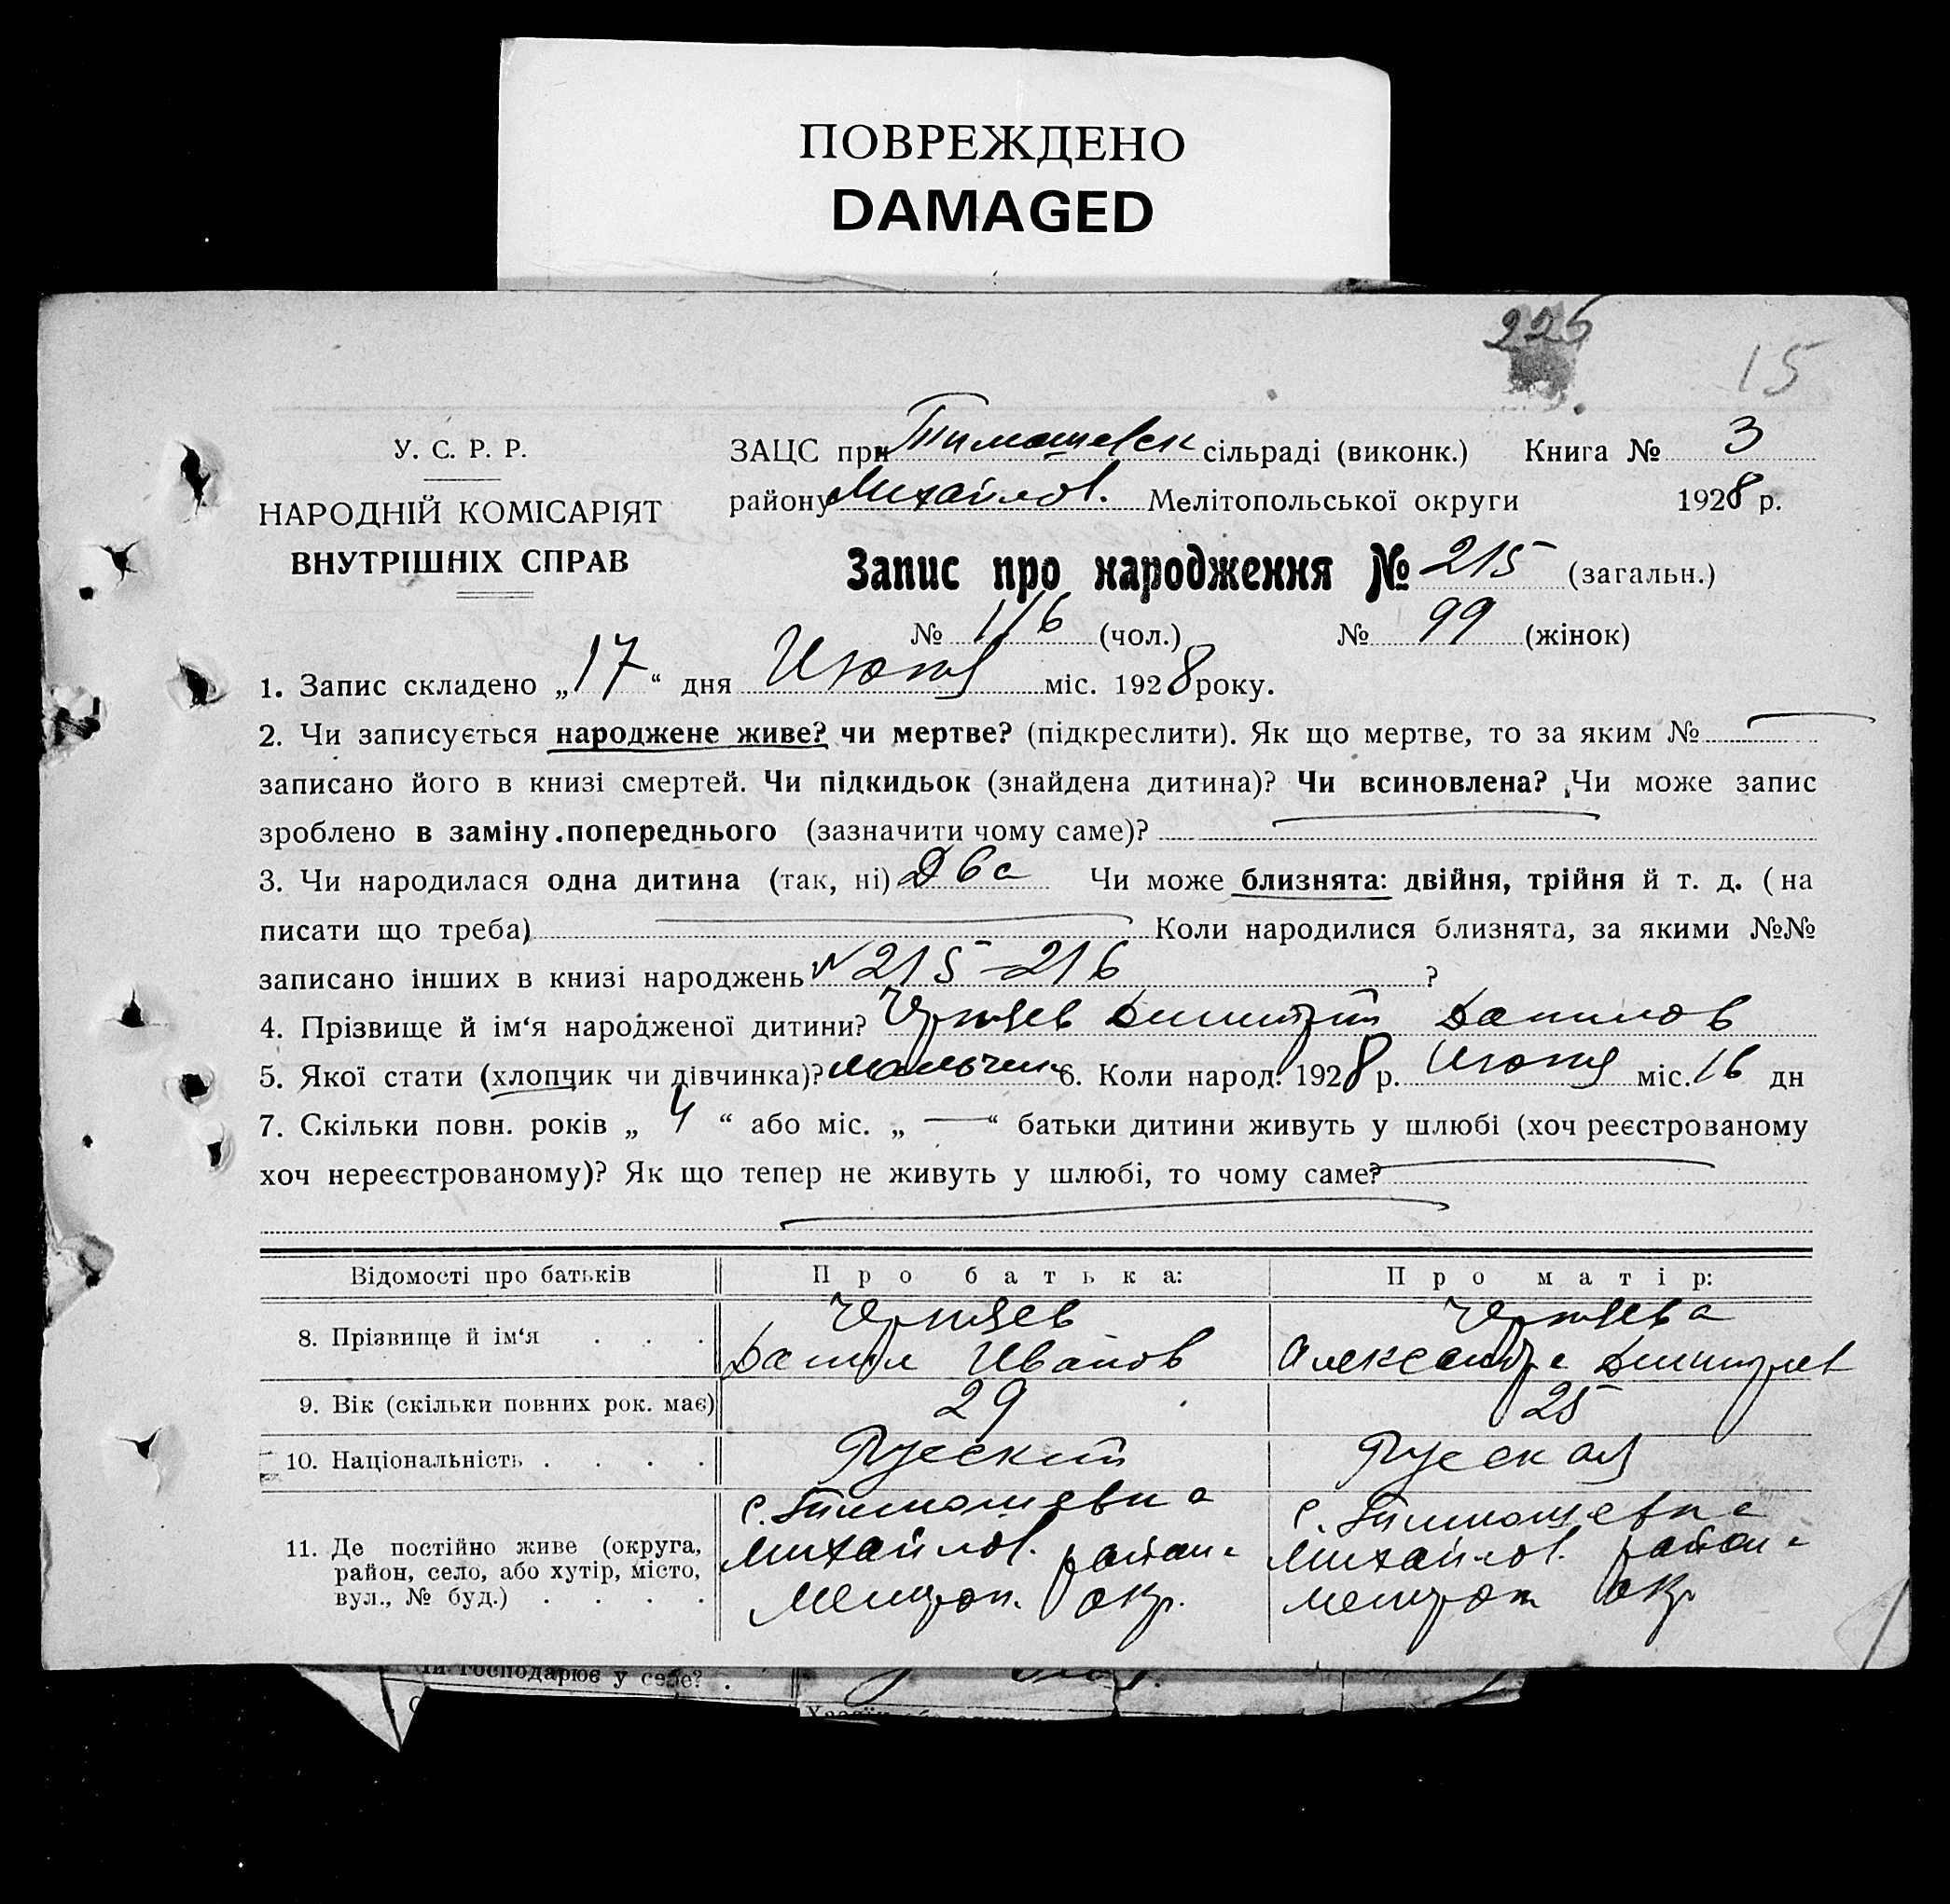 ПОВРЕЖДЕНО
DAMAGED
225
15
У. С. Р. Р.
НАРОДНІЙ КОМІСАРІЯТ
ВНУТРІШНІХ СПРАВ
ЗАЦС при Тимошевск сільраді (виконк.) Книга № 3
району Михайлов. Мелітопольської округи 1928 р.
Запис про народження № 215 (загальн.)
№ 116 (чол.) № 99 (жінок)
1. Запис складено „17“ дня Июня міс. 1928 року.
2. Чи записується народжене живе? чи мертве? (підкреслити). Як що мертве, то за яким №
записано його в книзі смертей. Чи підкидьок (знайдена дитина)? Чи всиновлена? Чи може запис
зроблено в заміну попереднього (зазначити чому саме)?
3. Чи народилася одна дитина (так, ні) Два Чи може близнята: двійня, трійня й т. д. (на
писати що треба) Коли народилися близнята, за якими №№
записано інших в книзі народжень № 215-216 ?
4. Прізвище й ім‘я народженої дитини? Димитрий Данилов
5. Якої стати (хлопчик чи дівчинка)? мальчик 6. Коли народ. 1928 р. Июня міс. 16 дн
7. Скільки повн. років „ 4 “ або міс. „ — “ батьки дитини живуть у шлюбі (хоч реєстрованому
хоч нереєстрованому)? Як що тепер не живуть у шлюбі, то чому саме?
Відомості про батьків Про батька: Про матір:
8. Прізвище й ім‘я . . .
Данил Иванов
Александра Димитриев
9. Вік (скільки повних рок. має) 29 25
10. Національність . . . . Русский Русская
11. Де постійно живе (округа,
район, село, або хутір, місто,
вул., № буд.) . . . .
с. Тимошевка
Михайлов. района
Мелитоп. окр.
с. Тимошевка
Михайлов. района
Мелитоп окр
Чи господарює у селе? .